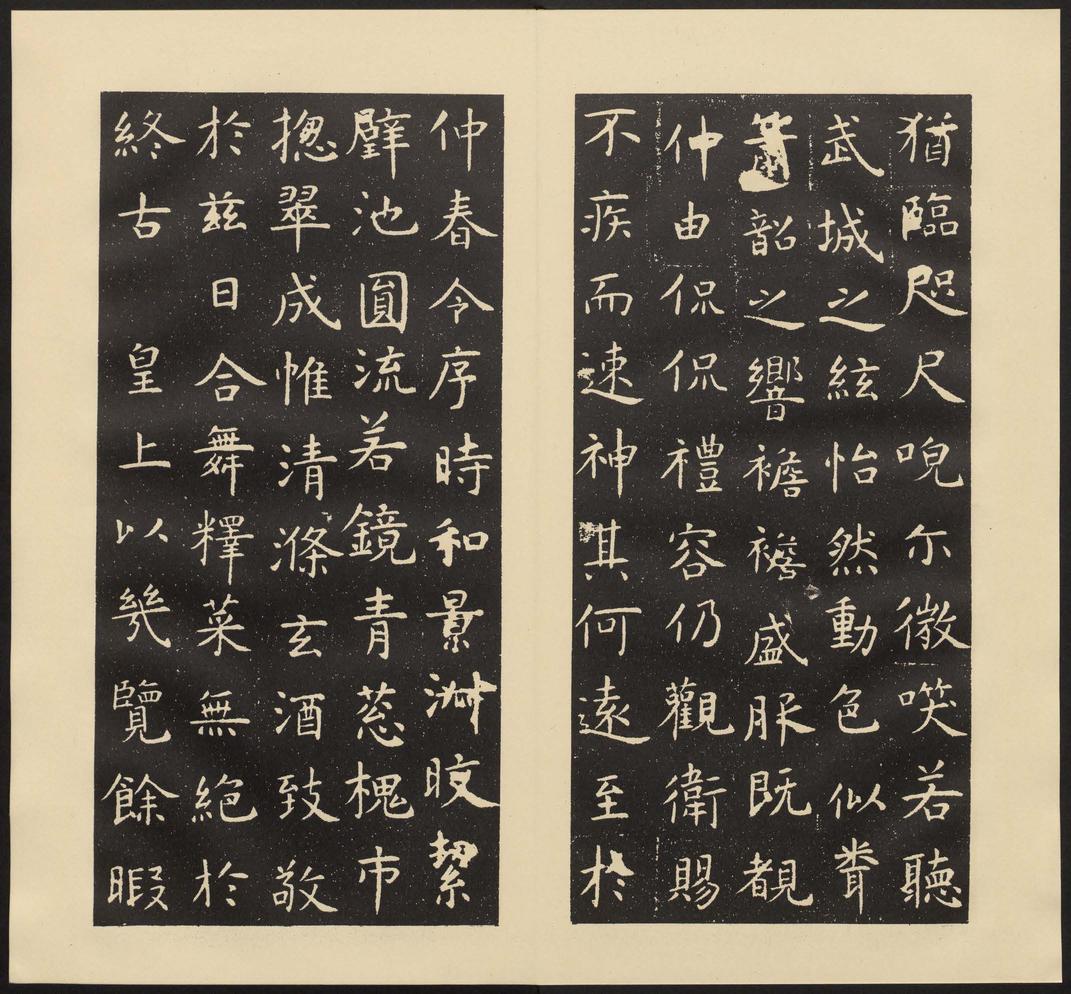 猶臨咫尺唲尔微咲若聽
武城之絃怡然動色似䎽
簫韶之響襜襜盛服既覩
仲由侃侃禮容仍觀衛賜
不疾而速神其何遠至於
仲春令序時和景淑晈絜
璧池圓流若鏡青葱槐市
摠翠成帷清滌玄酒致敬
於茲日合舞釋菜無絕於
終古　皇上以幾覽餘暇